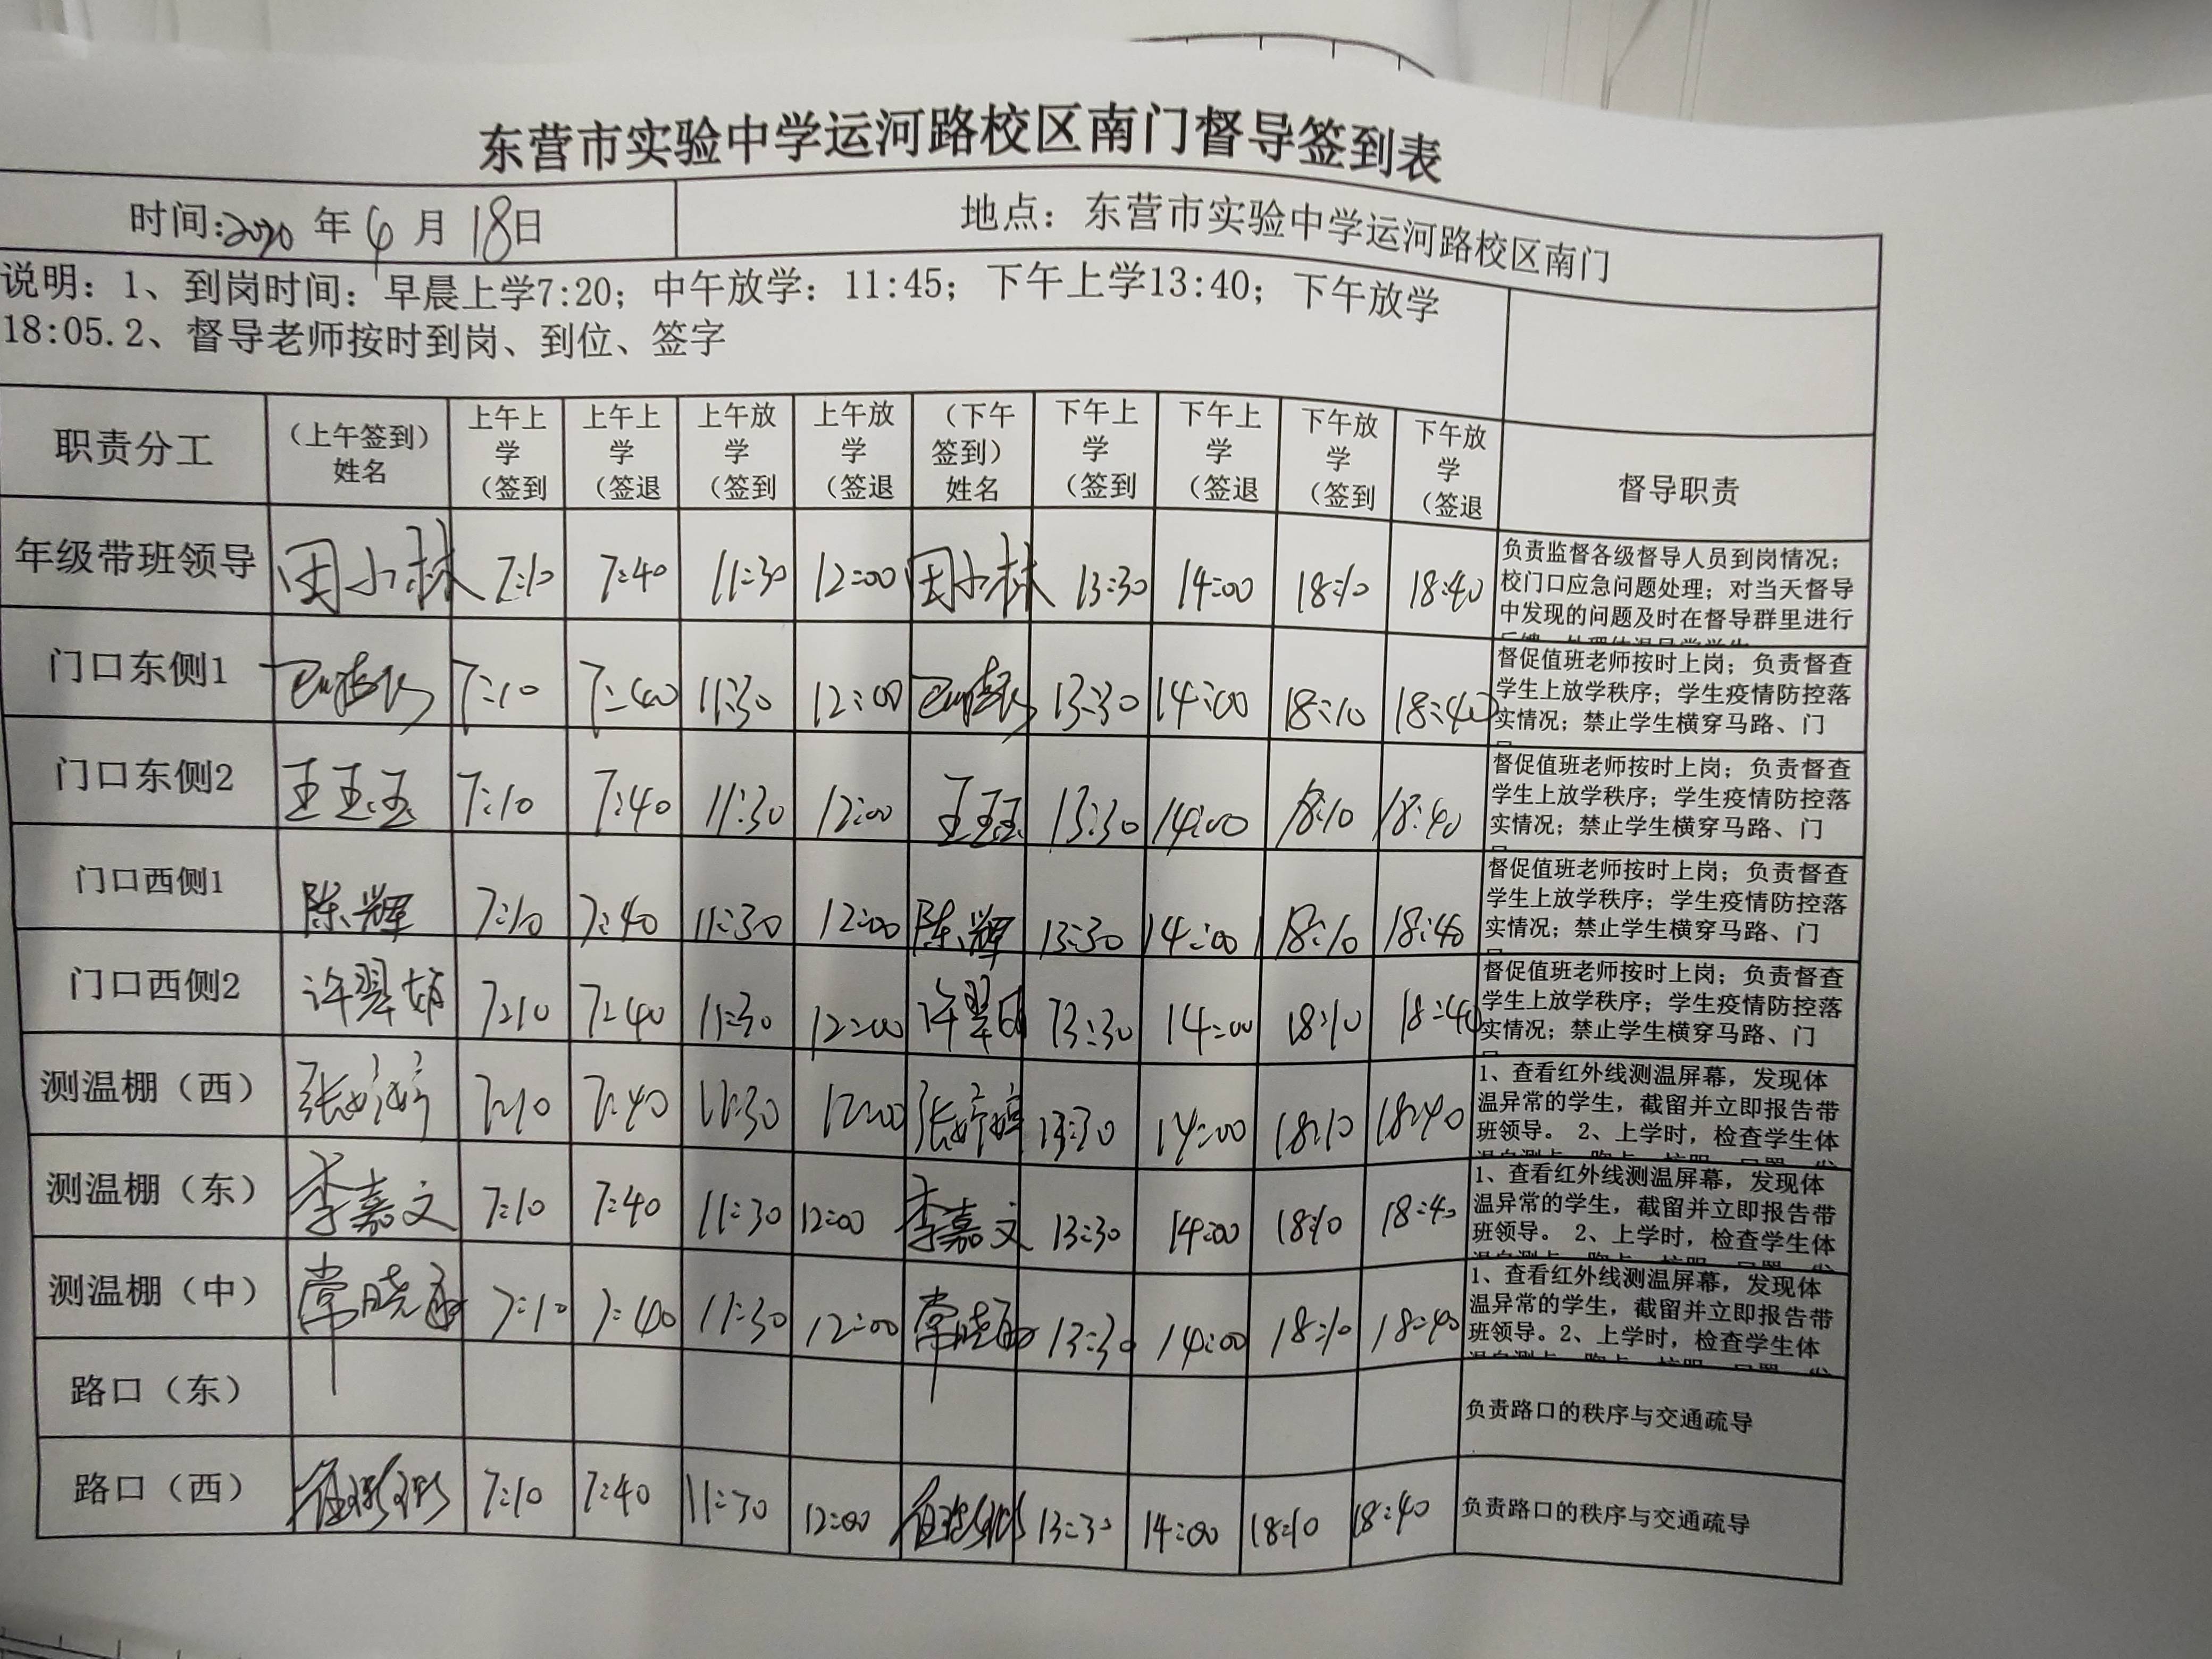 东营市实验中学运河路校区南门督导签到表
时间:2020 年 6 月 18日 地点：东营市实验中学运河路校区南门
说明：1、到岗时间：早晨上学7:20；中午放学：11:45；下午上学13:40；下午放学
18:05.2、督导老师按时到岗、到位、签字
职责分工 （上午签到）姓名 上午上学（签到 上午上学（签退 上午放学（签到 上午放学（签退 （下午签到）姓名 下午上学（签到 下午上学（签退 下午放学（签到 下午放学（签退 督导职责
年级带班领导 周小林 7:10 7:40 11:30 12:00 周小林 13:30 14:00 18:10 18:40
负责监督各级督导人员到岗情况；
校门口应急问题处理；对当天督导
中发现的问题及时在督导群里进行
门口东侧1 7:10 7:40 11:30 12:00 13:30 14:00 18:10 18:40
督促值班老师按时上岗；负责督查
学生上放学秩序；学生疫情防控落
实情况；禁止学生横穿马路、门
门口东侧2 王玉玉 7:10 7:40 11:30 12:00 王玉玉 13:30 14:00 18:10 18:40
督促值班老师按时上岗；负责督查
学生上放学秩序；学生疫情防控落
实情况；禁止学生横穿马路、门
门口西侧1 陈辉 7:10 7:40 11:30 12:00 陈辉 13:30 14:00 18:10 18:40
督促值班老师按时上岗；负责督查
学生上放学秩序；学生疫情防控落
实情况；禁止学生横穿马路、门
门口西侧2 许翠 7:10 7:40 11:30 12:00 许翠 13:30 14:00 18:10 18:40
督促值班老师按时上岗；负责督查
学生上放学秩序；学生疫情防控落
实情况；禁止学生横穿马路、门
测温棚（西） 张婷婷 7:10 7:40 11:30 12:00 张婷婷 13:30 14:00 18:10 18:40
1、查看红外线测温屏幕，发现体
温异常的学生，截留并立即报告带
班领导。 2、上学时，检查学生体
测温棚（东） 李嘉文 7:10 7:40 11:30 12:00 李嘉文 13:30 14:00 18:10 18:40
1、查看红外线测温屏幕，发现体
温异常的学生，截留并立即报告带
班领导。 2、上学时，检查学生体
测温棚（中） 常晓 7:10 7:40 11:30 12:00 常晓 13:30 14:00 18:10 18:40
1、查看红外线测温屏幕，发现体
温异常的学生，截留并立即报告带
班领导。2、上学时，检查学生体
路口（东） 负责路口的秩序与交通疏导
路口（西） 7:10 7:40 11:30 12:00 13:30 14:00 18:10 18:40 负责路口的秩序与交通疏导